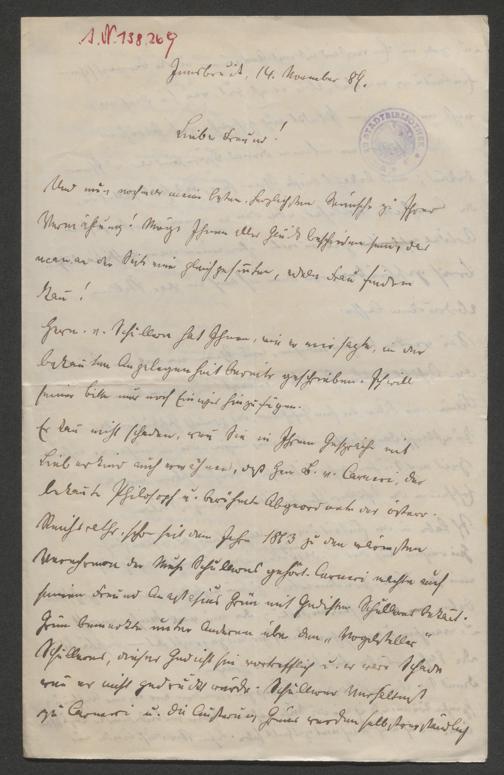 J. N. 138.269
Innsbruck, 14. November 89.
STADTBIBLIOTHEK
Lieber Freund!
Und nun nochmals meine besten, herzlichsten Wünsche zu Ihrer
Vermählung! Möge Ihnen alles Glück beschieden sein, das
man an der Seite einer gleichgesinnten, edlen Frau finden
kann!
Herr v. Schullern hat Ihnen, wie er mir sagte, in der
bekannten Angelegenheit bereits geschrieben. Ich will
seiner Bitte nur noch Einiges hinzufügen.
Es kann nicht schaden, wenn Sie in Ihrem Gespräche mit
auch erwähnen, daß Herr B. v. Carneri, der
bekannte Philosoph u. berühmte Abgeordnete des österr.
Reichsrathes, schon seit dem Jahre 1873 zu den wärmsten
Verehrern der Muse Schullerns gehört. Carneri machte auch
seinen Freund Anastasius Grün mit Gedichten Schullerns bekannt.
Grün bemerkte unter Anderem über den „Vogelsteller"
Schullerns, dieses Gedicht sei vortrefflich u. es wäre Schade
wenn es nicht gedruckt würde. Schullerns Verhältniß
zu Carneri u. die Äußerung Grüns werden selbstverständlich